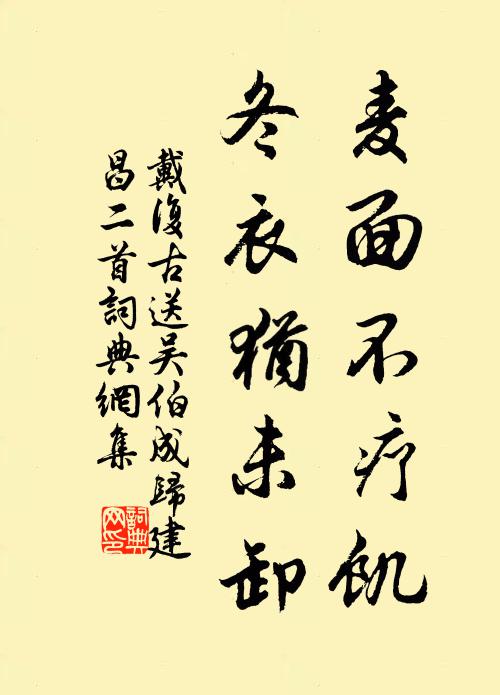 麦面不疗飢
冬衣猶未卸
戴復古送吴伯成歸建
昌二首詞典網集
詞典
网印